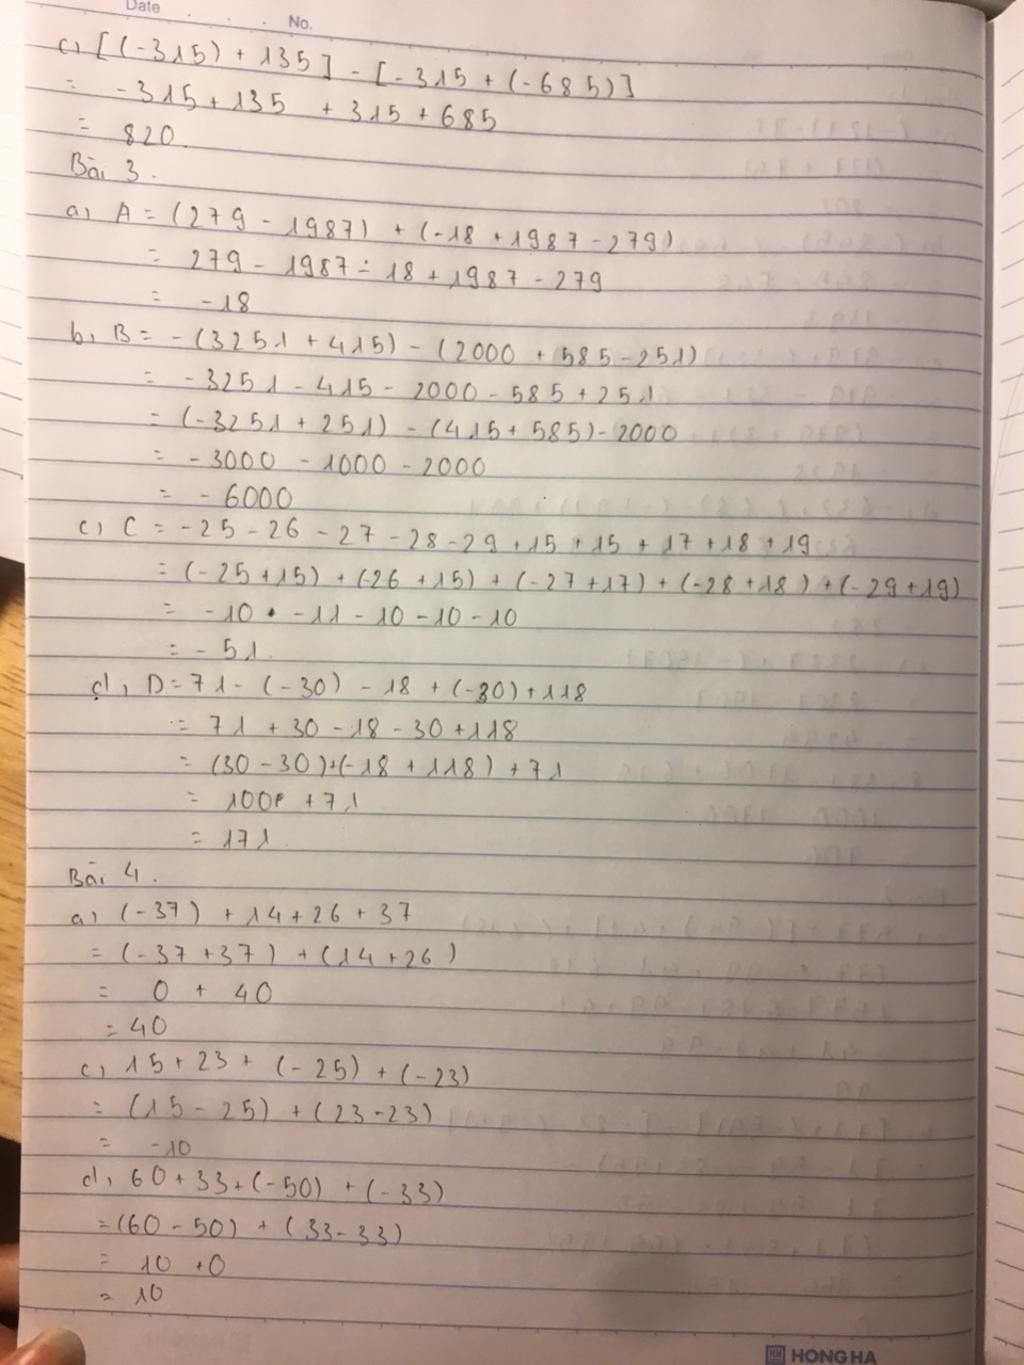 Date
No.
c, [(-315) + 135] - [-315 + (-685)]
= -315 + 135 + 315 + 685
= 820.
Bài 3.
a, A = (279 - 1987) + (-18 + 1987 - 279)
= 279 - 1987 - 18 + 1987 - 279
= -18
b, B = -(3251 + 415) - (2000 + 585 - 251)
= -3251 - 415 - 2000 - 585 + 251
= (-3251 + 251) - (415 + 585) - 2000
= -3000 - 1000 - 2000
= -6000
c, C = -25 - 26 - 27 - 28 - 29 + 15 + 15 + 17 + 18 + 19
= (-25 + 15) + (-26 + 15) + (-27 + 17) + (-28 + 18) + (-29 + 19)
= -10 - 11 - 10 - 10 - 10
= -51
d, D = 71 - (-30) - 18 + (-30) + 118
= 71 + 30 - 18 - 30 + 118
= (30 - 30) + (-18 + 118) + 71
= 100 + 71
= 171
Bài 4.
a, (-37) + 14 + 26 + 37
= (-37 + 37) + (14 + 26)
= 0 + 40
= 40
c, 15 + 23 + (-25) + (-23)
= (15 - 25) + (23 - 23)
= -10
d, 60 + 33 + (-50) + (-33)
= (60 - 50) + (33 - 33)
= 10 + 0
= 10
HONG HA